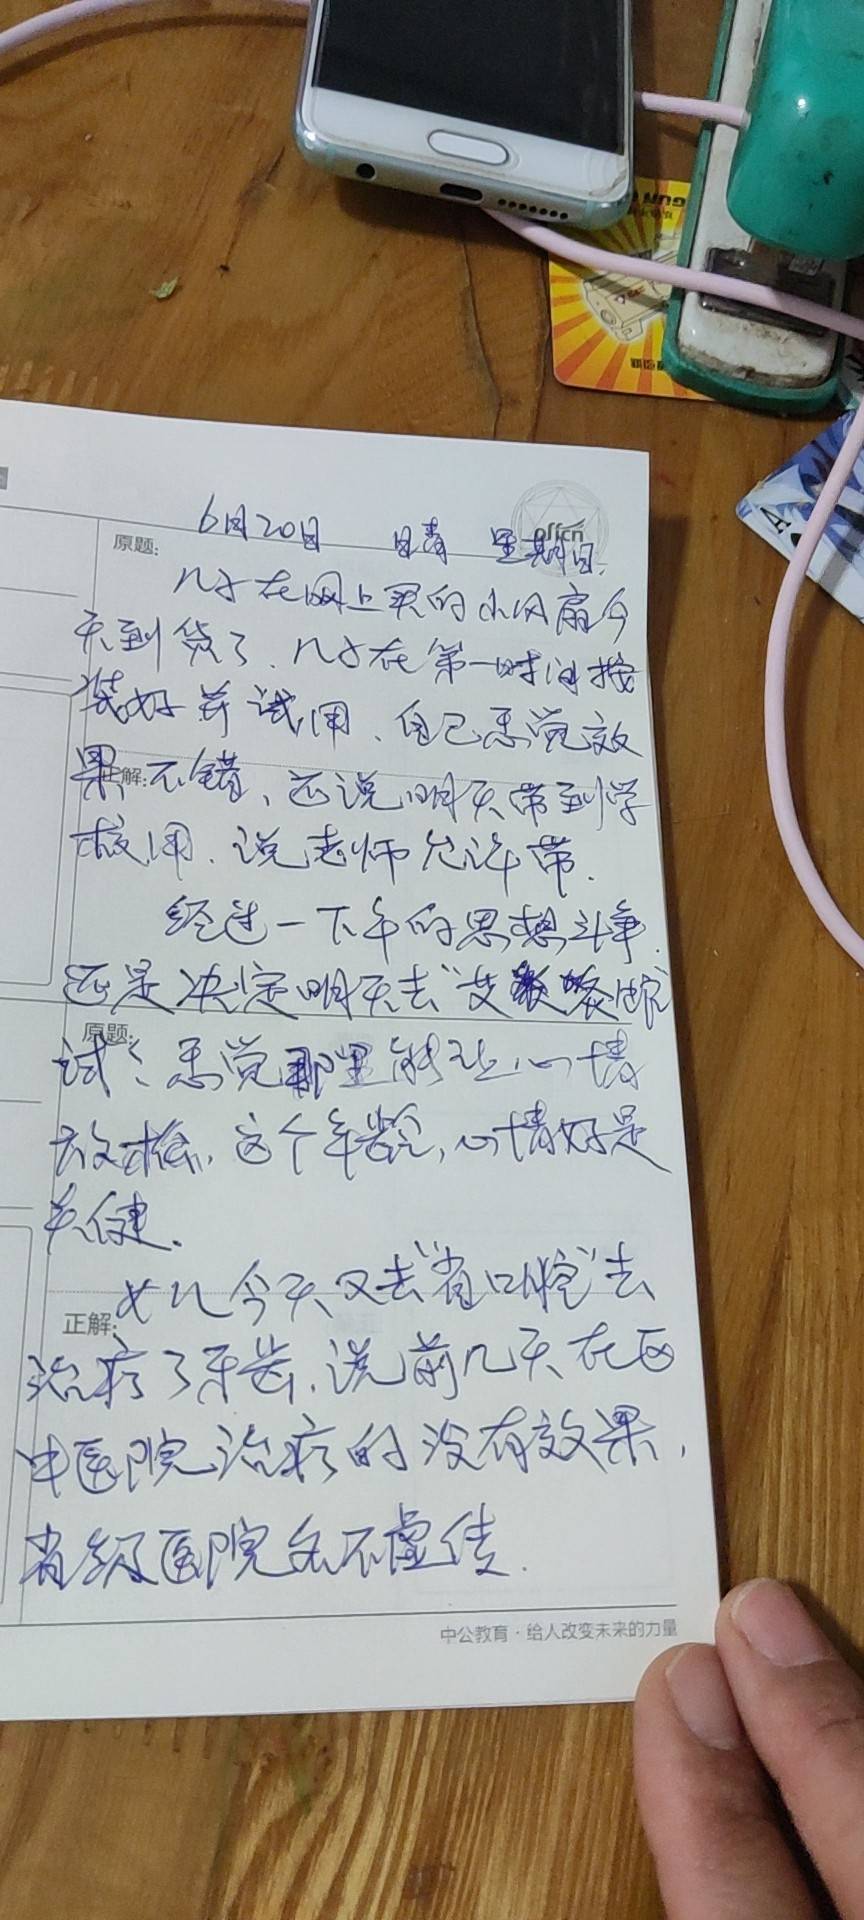 offcn
6月20日 晴 星期日.
原题:
儿子在网上买的小风扇今
天到货了.儿子在第一时间按
装好并试用、自己感觉效
果不错、还说明天带到学
正解:
校用.说老师允许带.
经过一下午的思想斗争.
还是决定明天去"艾
原题:
试试、感觉那里能让心情
放松,这个年龄,心情好是
关健.
女儿今天又去"省口腔"去
正解:
治疗了牙齿,说前几天在西
中医院治疗的没有效果,
省级医院名不虚传.
中公教育·给人改变未来的力量